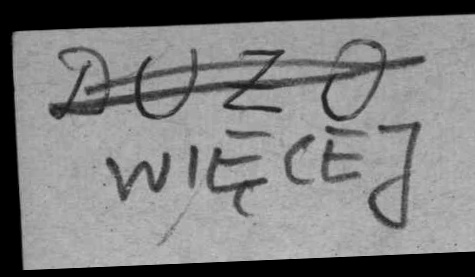 DUZO
WIĘCEJ